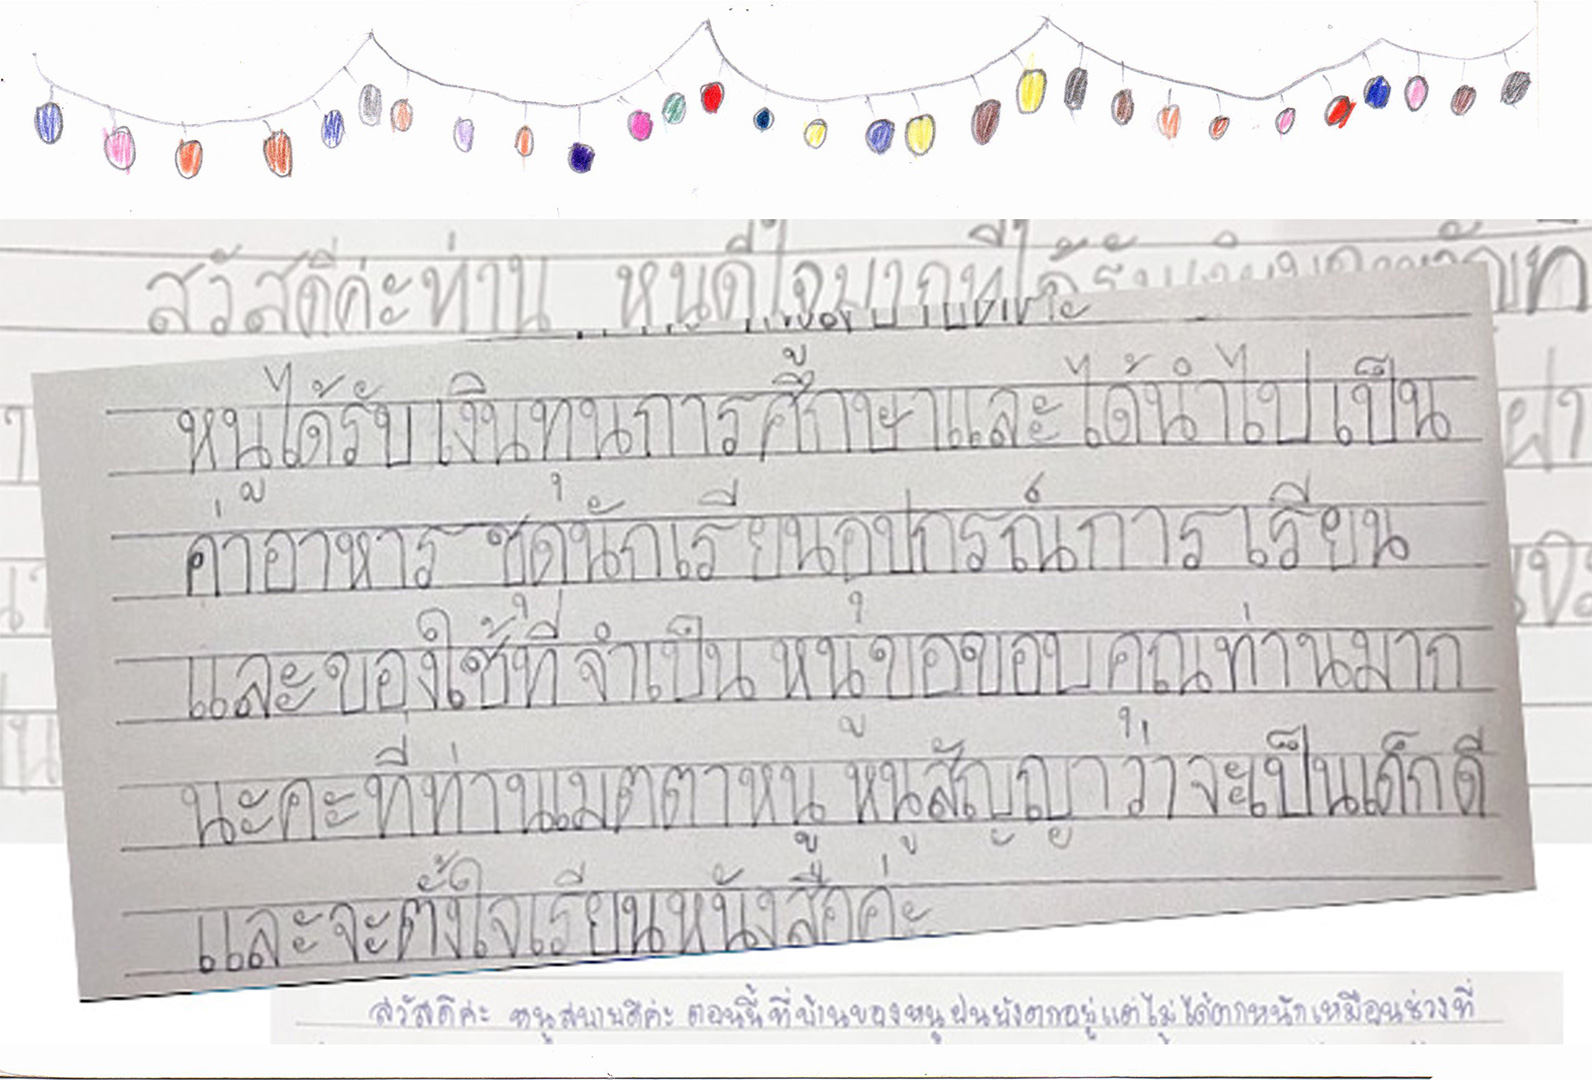 สวัสดีค่ะท่าน หนูดีใจมากที่ได้รับ
หนูได้รับเงินทุนการศึกษาและได้นำไปเป็น
ค่าอาหาร ชุดนักเรียนอุปกรณ์การเรียน
และของใช้ที่จำเป็น หนูขอขอบคุณท่านมาก
นะคะที่ท่านเมตตาหนู หนูสัญญาว่าจะเป็นเด็กดี
และจะตั้งใจเรียนหนังสือค่ะ
สวัสดีค่ะ หนูสบายดีค่ะ ตอนนี้ที่บ้านของหนูฝนยังตกอยู่แต่ไม่ได้ตกหนักเหมือนช่วงที่